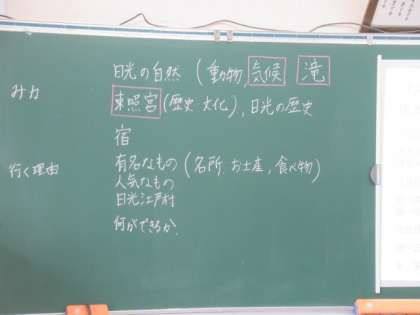 日光の自然 (動物, 気候 滝
東照宮 (歴史 文化), 日光の歴史
宿
行く理由 有名なもの (名所 お土産, 食べ物)
人気なもの
日光江戸村
何ができるか.